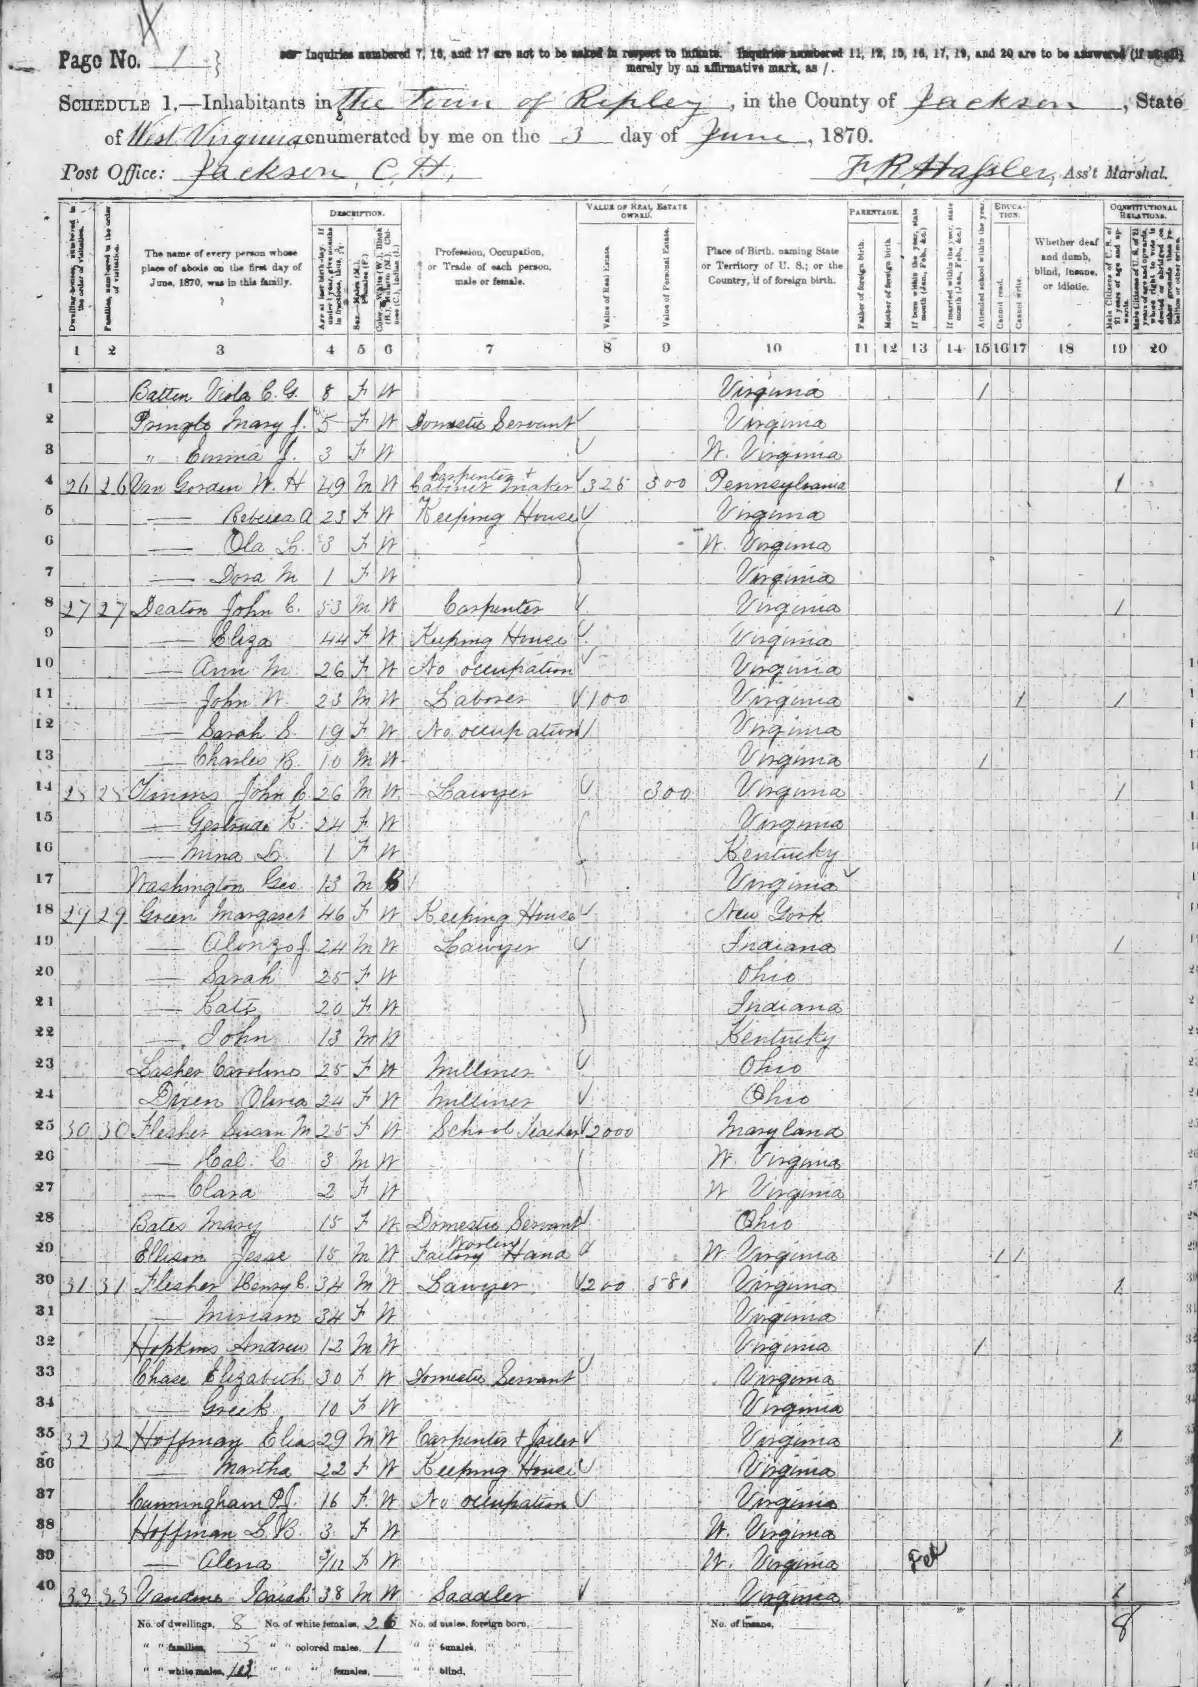 Page No. 1
Inquiries numbered 7, 16, and 17 are not to be asked in respect to infants. Inquiries numbered 11, 12, 15, 16, 17, 19, and 20 are to be answered (if at all)
merely by an affirmative mark, as /.
SCHEDULE 1.—Inhabitants in The Town of Ripley, in the County of Jackson, State
of West Virginia enumerated by me on the 3 day of June, 1870.
Post Office: Jackson C. H. F. R. Hassler, Ass't Marshal.
Dwelling-houses, numbered in the order of visitation.
Families, numbered in the order of visitation.
The name of every person whose place of abode on the first day of June, 1870, was in this family.
DESCRIPTION.
Age at last birth-day. If under 1 year, give months in fractions, thus, 3/12
Sex.—Males (M.), Females (F.)
Color.—White (W.), Black (B.), Mulatto (M.), Chinese (C.), Indian (I.)
Profession, Occupation, or Trade of each person, male or female.
VALUE OF REAL ESTATE OWNED.
Value of Real Estate.
Value of Personal Estate.
Place of Birth, naming State or Territory of U. S.; or the Country, if of foreign birth.
PARENTAGE.
Father of foreign birth.
Mother of foreign birth.
If born within the year, state month (Jan., Feb., &c.)
If married within the year, state month (Jan., Feb., &c.)
EDUCATION.
Attended school within the year.
Cannot read.
Cannot write.
Whether deaf and dumb, blind, insane, or idiotic.
CONSTITUTIONAL RELATIONS.
Male Citizens of U. S. of 21 years of age and upwards.
Male Citizens of U. S. of 21 years of age and upwards, whose right to vote is denied or abridged on other grounds than rebellion or other crime.
1 2 3 4 5 6 7 8 9 10 11 12 13 14 15 16 17 18 19 20
1 Batten Viola C. G. 8 F W Virginia /
2 Pringle Mary J. 5 F W Domestic Servant Virginia
3 " Emma J. 3 F W W. Virginia
4 26 26 Van Gorden W. H 49 M W Carpenter + Cabinet Maker 325 300 Pennsylvania /
5 — Rebecca A 23 F W Keeping House Virginia
6 — Ola L. 3 F W W. Virginia
7 — Dora M 1 F W Virginia
8 27 27 Deaton John C. 53 M W Carpenter Virginia /
9 — Eliza 44 F W Keeping House Virginia
10 — Ann M 26 F W No occupation Virginia
11 — John W. 23 M W Laborer 100 Virginia / /
12 — Sarah S. 19 F W No occupation Virginia
13 — Charles B. 10 M W Virginia /
14 28 28 Timms John E 26 M W Lawyer 300 Virginia /
15 — Gertrude K. 24 F W Virginia
16 — Mina L. 1 F W Kentucky
17 Washington Geo. 13 M B Virginia
18 29 29 Green Margaret 46 F W Keeping House New York
19 — Alonzo J 24 M W Lawyer Indiana /
20 — Sarah 25 F W Ohio
21 — Kate 20 F W Indiana
22 — John 13 M W Kentucky
23 Lasher Caroline 25 F W Milliner Ohio
24 Dixen Olivia 24 F W Milliner Ohio
25 30 30 Flesher Susan M 25 F W School Teacher 2000 Maryland
26 — Hal. C 3 M W W. Virginia
27 — Clara 2 F W W Virginia
28 Bates Mary 15 F W Domestic Servant Ohio
29 Ellison Jesse 15 M W Factory Woolen Hand W Virginia / /
30 31 31 Flesher Henry C. 34 M W Lawyer 200 580 Virginia /
31 — Miriam 34 F W Virginia
32 Hopkins Andrew 12 M W Virginia /
33 Chase Elizabeth 30 F W Domestic Servant Virginia
34 — Greek 10 F W Virginia
35 32 32 Hoffman Elias 29 M W Carpenter + Jailer Virginia /
36 — Martha 22 F W Keeping House Virginia
37 Cunningham P. J. 16 F. W No occupation Virginia
38 Hoffman L. B. 3 F W W. Virginia
39 — Alena 3/12 F W W. Virginia Feb
40 33 33 Isaiah 38 M W Saddler Virginia /
No. of dwellings, 8 No. of white females, 26 No. of males, foreign born, No. of insane, 8
" " families, " " colored males, 1 " " females, " "
" " white males, 13 " " " females, " " blind,